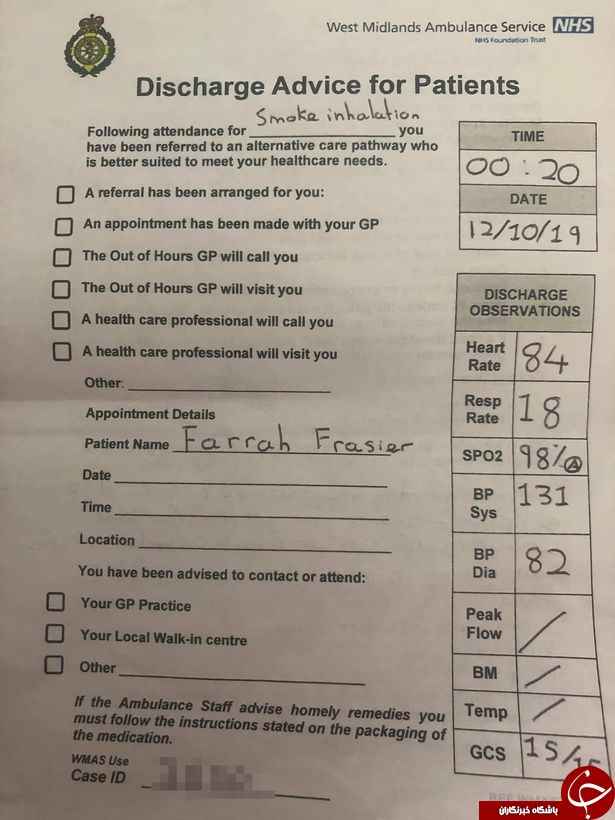 West Midlands Ambulance Service NHS
NHS Foundation Trust
Discharge Advice for Patients
Following attendance for Smoke inhalation you
have been referred to an alternative care pathway who
is better suited to meet your healthcare needs.
A referral has been arranged for you:
An appointment has been made with your GP
The Out of Hours GP will call you
The Out of Hours GP will visit you
A health care professional will call you
A health care professional will visit you
Other:
Appointment Details
Patient Name Farrah Frasier
Date
Time
Location
You have been advised to contact or attend:
Your GP Practice
Your Local Walk-in centre
Other
If the Ambulance Staff advise homely remedies you
must follow the instructions stated on the packaging of
the medication.
WMAS Use
Case ID
TIME
00:20
DATE
12/10/19
DISCHARGE
OBSERVATIONS
Heart
Rate 84
Resp
Rate 18
SPO2 98% A
BP
Sys 131
BP
Dia 82
Peak
Flow /
BM /
Temp /
GCS 15/15
باشگاه خبرنگاران